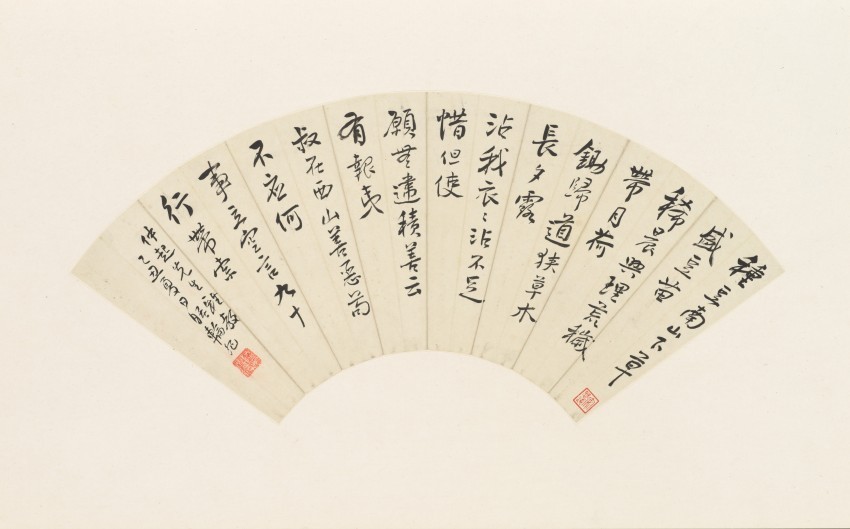 種豆南山下草
盛豆苗
稀晨興理荒穢
帶月荷
鋤歸道狹草木
長夕露
沾我衣〻沾不足
惜但使
願無違積善云
有報夷
叔在西山善惡苟
不應何
事立空言九十
行帶索
仲起先生雅教
乙丑夏日